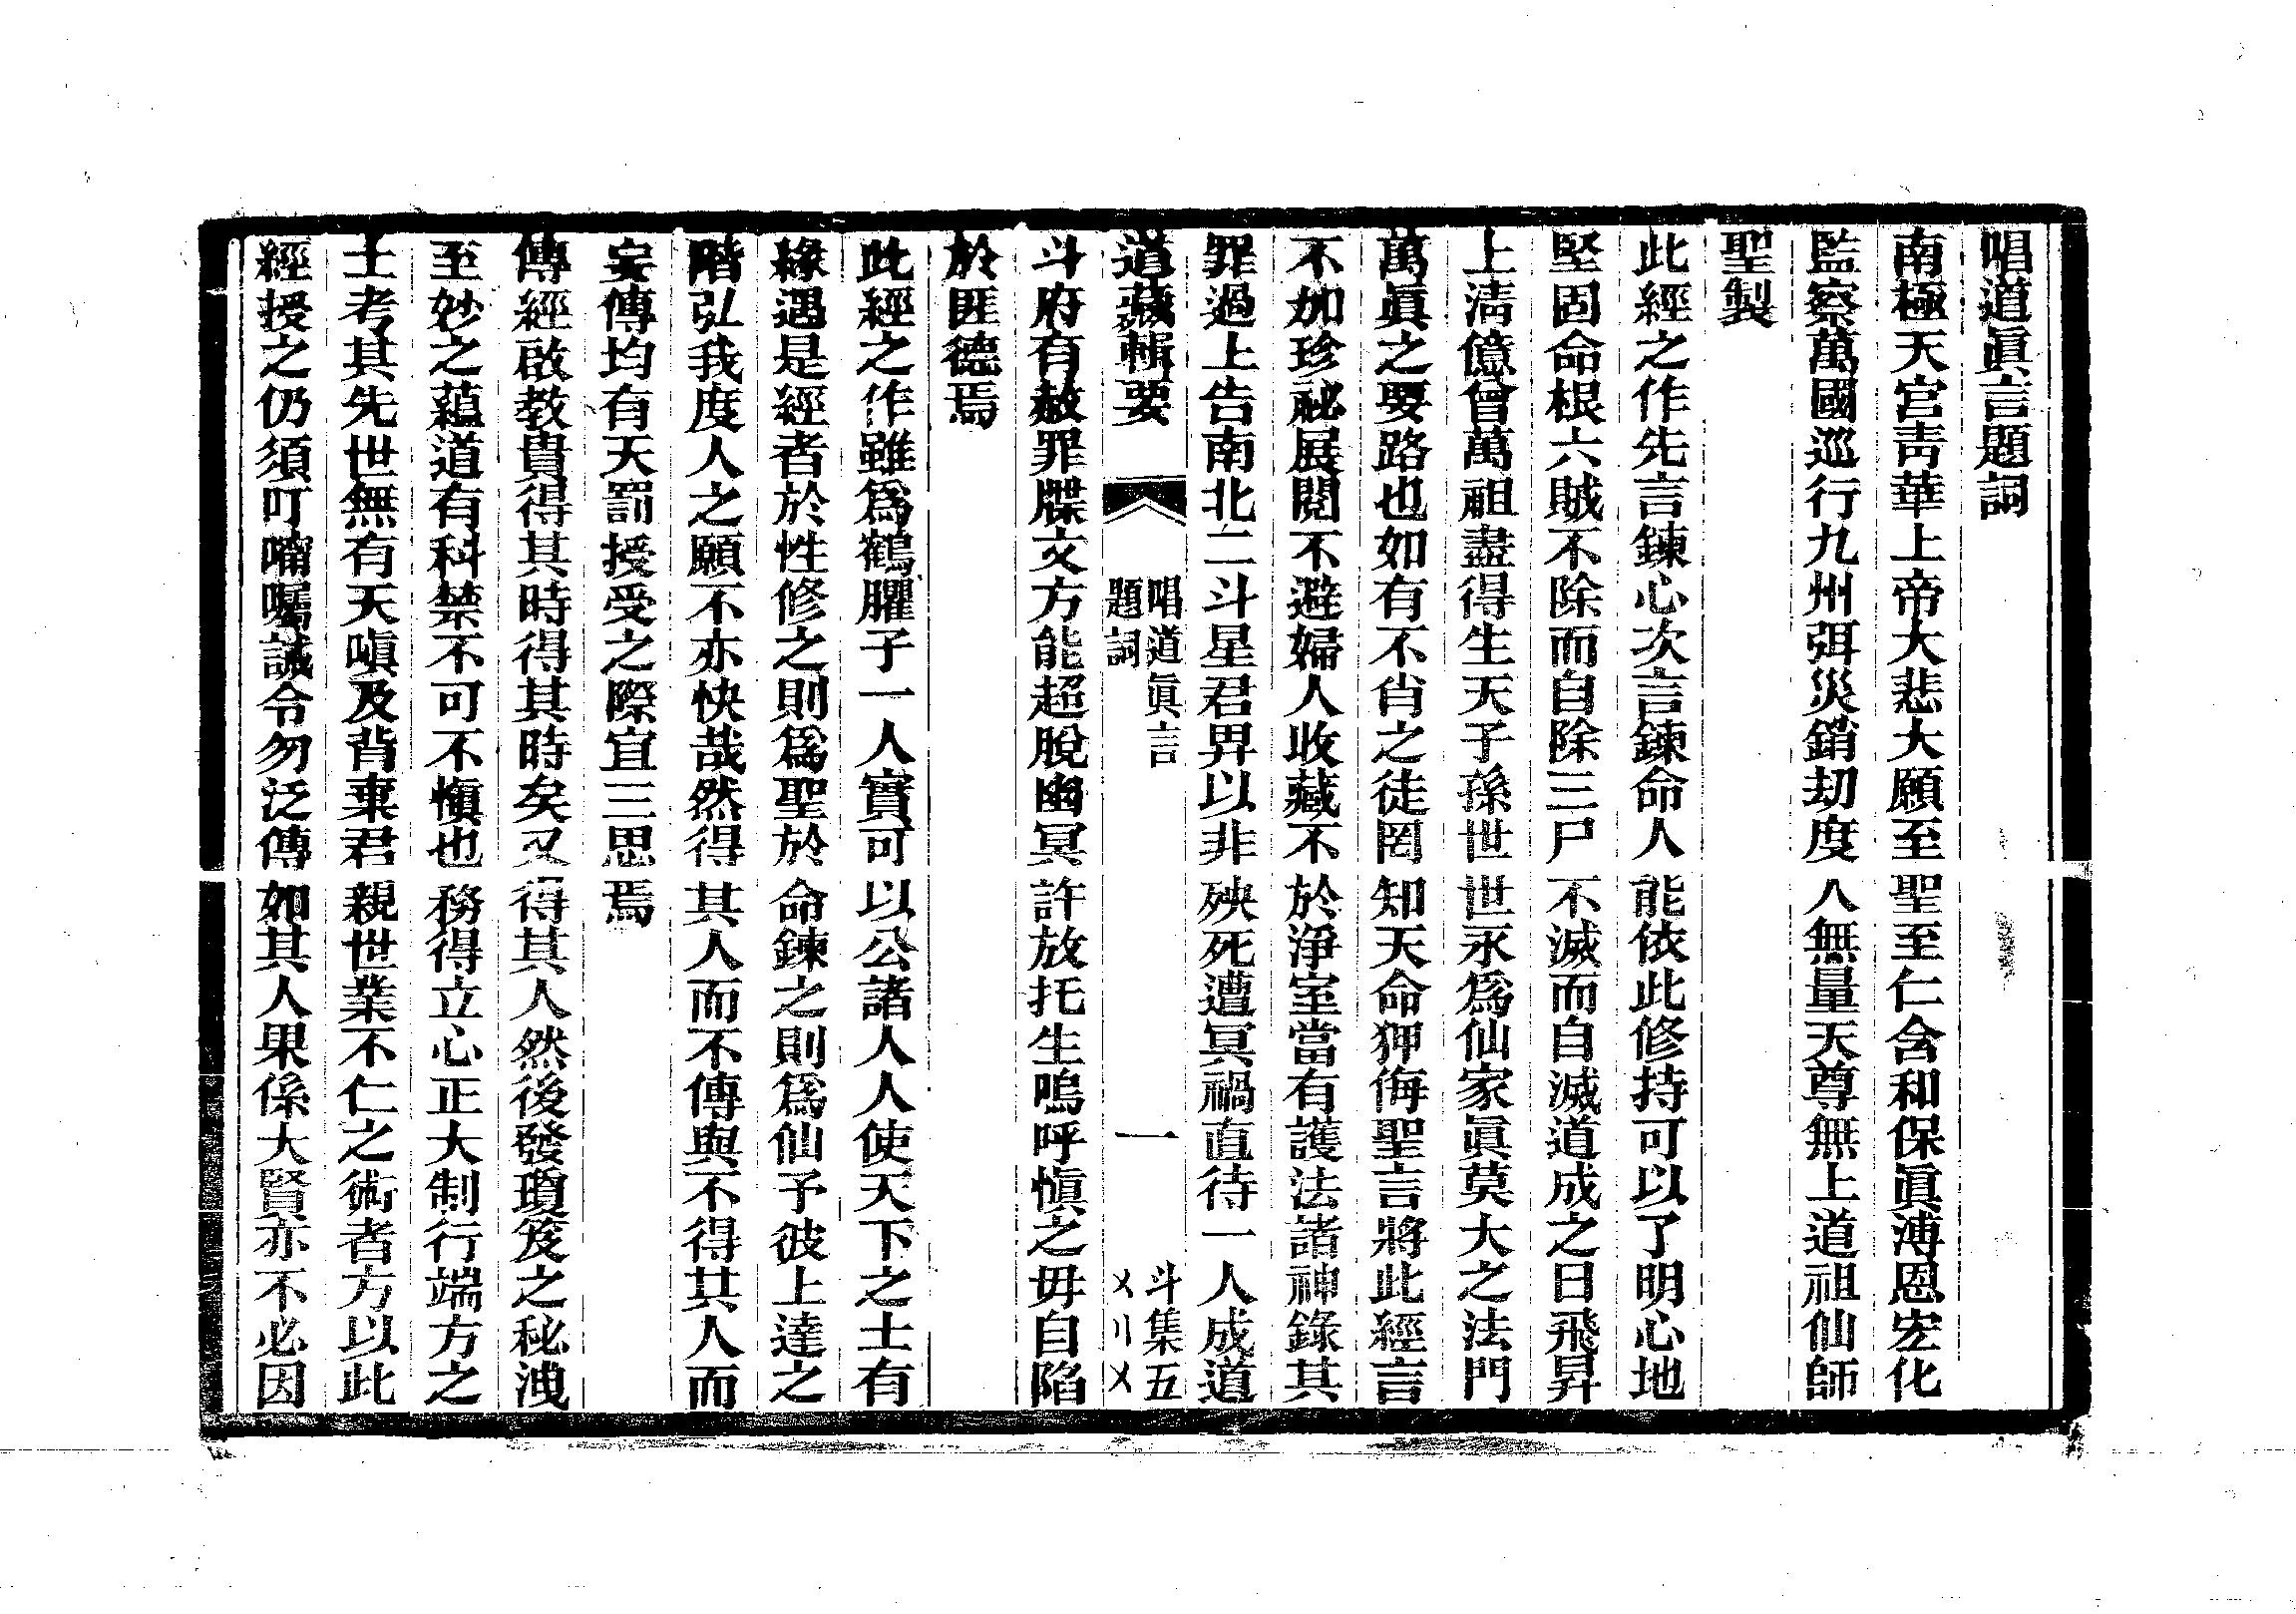 唱道眞言題詞
南極天宮靑華上帝大悲大願至聖至仁含和保眞溥恩宏化
監察萬國巡行九州弭災銷劫度人無量天尊無上道祖仙師
聖製
此經之作先言鍊心次言鍊命人能依此修持可以了明心地
堅固命根六賊不除而自除三尸不滅而自滅道成之日飛昇
上淸億曾萬祖盡得生天子孫世世永爲仙家眞莫大之法門
萬眞之要路也如有不肖之徒罔知天命狎侮聖言將此經言
不加珍祕展閱不避婦人收藏不於淨室當有護法諸神錄其
罪過上告南北二斗星君畀以非殃死遭冥禍直待一人成道
道藏輯要
唱道眞言
題詞
一
斗集五
〤〢〤
斗府有赦罪牒文方能超脫幽冥許放托生嗚呼愼之毋自陷
於匪德焉
此經之作雖爲鶴臞子一人實可以公諸人人使天下之士有
緣遇是經者於性修之則爲聖於命鍊之則爲仙予彼上達之
階弘我度人之願不亦快哉然得其人而不傳與不得其人而
妄傳均有天罰授受之際宜三思焉
傳經啟敎貴得其時得其時矣又得其人然後發瓊笈之秘洩
至妙之蘊道有科禁不可不愼也務得立心正大制行端方之
士考其先世無有天嗔及背棄君親世業不仁之術者方以此
經授之仍須叮嚀囑誡令勿泛傳如其人果係大賢亦不必因